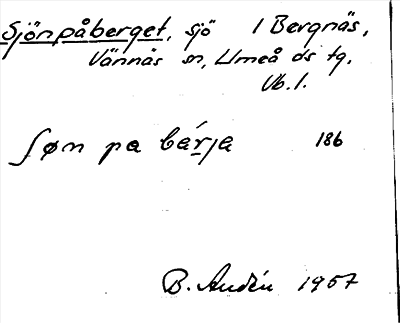 Sjönpåberget, sjö I Bergnäs,
Vännäs sn, Umeå ds tg.
Vb. l.
ʃøn pa bárja 186
B. Audén 1957